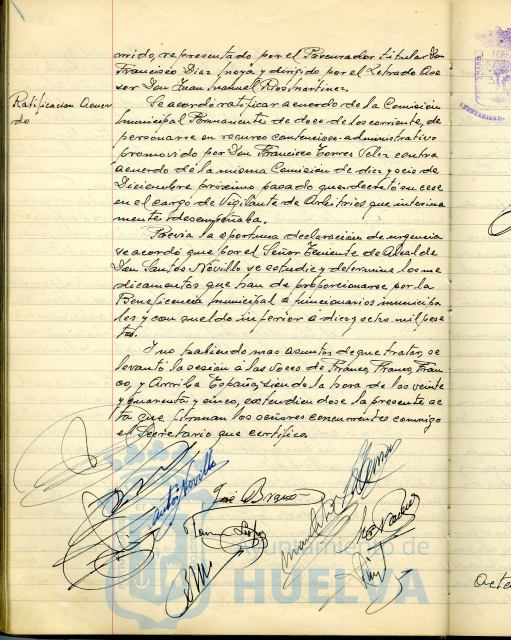 rrido, representado por el Procurador titular Don
Francisco Diaz y dirigido por el Letrado Ase
sor Don Juan Manuel Rios Martinez.
Ratificacion Acuer
do
Se acordó ratificar acuerdo de la Comisión
Municipal Permanente de doce de los corriente, de
personarse en recurso contencioso-administrativo
promovido por Don Francisco Torres Velez contra
acuerdo de la misma Comision de diez y ocio de
Diciembre próximo pasado que decretó su cese
en el cargo de Vigilante de Arbitrios que interina
mente desempeñaba.
Previa la oportuna declaración de urgencia
se acordó que por el Señor Teniente de Alcalde
Don Santos Novillo se estudie y determine los me
dicamentos que han de proporcionarse por la
Beneficencia Municipal a funcionarios municipa
les y con sueldo inferior á diez ocho mil pese
tas.
Y no habiendo mas asuntos de que tratar, se
levantó la sesión a las voces de Franco, Franco, Fran
co, y Arriba España, siendo la hora de las veinte
y cuarenta y cinco, extendiendose la presente ac
ta que firman los señores concurrentes conmigo
el Secretario que certifico.
Santos Novillo
José Bravo
Ayuntamiento de
HUELVA
AYUNTAMIENTO
Acta